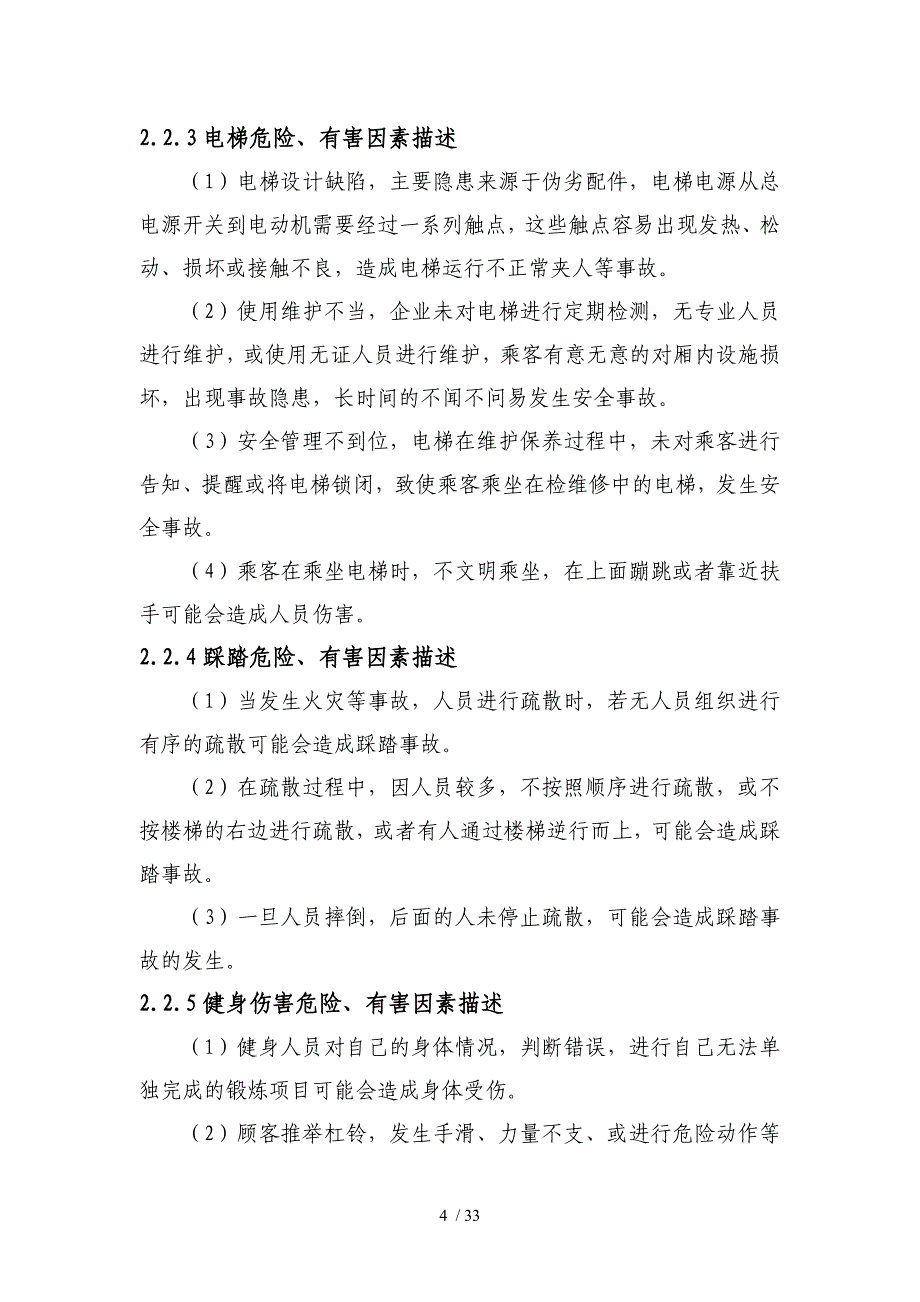 2.2.3电梯危险、有害因素描述
（1）电梯设计缺陷，主要隐患来源于伪劣配件，电梯电源从总
电源开关到电动机需要经过一系列触点，这些触点容易出现发热、松
动、损坏或接触不良，造成电梯运行不正常夹人等事故。
（2）使用维护不当，企业未对电梯进行定期检测，无专业人员
进行维护，或使用无证人员进行维护，乘客有意无意的对厢内设施损
坏，出现事故隐患，长时间的不闻不问易发生安全事故。
（3）安全管理不到位，电梯在维护保养过程中，未对乘客进行
告知、提醒或将电梯锁闭，致使乘客乘坐在检维修中的电梯，发生安
全事故。
（4）乘客在乘坐电梯时，不文明乘坐，在上面蹦跳或者靠近扶
手可能会造成人员伤害。
2.2.4踩踏危险、有害因素描述
（1）当发生火灾等事故，人员进行疏散时，若无人员组织进行
有序的疏散可能会造成踩踏事故。
（2）在疏散过程中，因人员较多，不按照顺序进行疏散，或不
按楼梯的右边进行疏散，或者有人通过楼梯逆行而上，可能会造成踩
踏事故。
（3）一旦人员摔倒，后面的人未停止疏散，可能会造成踩踏事
故的发生。
2.2.5健身伤害危险、有害因素描述
（1）健身人员对自己的身体情况，判断错误，进行自己无法单
独完成的锻炼项目可能会造成身体受伤。
（2）顾客推举杠铃，发生手滑、力量不支、或进行危险动作等
4 / 33